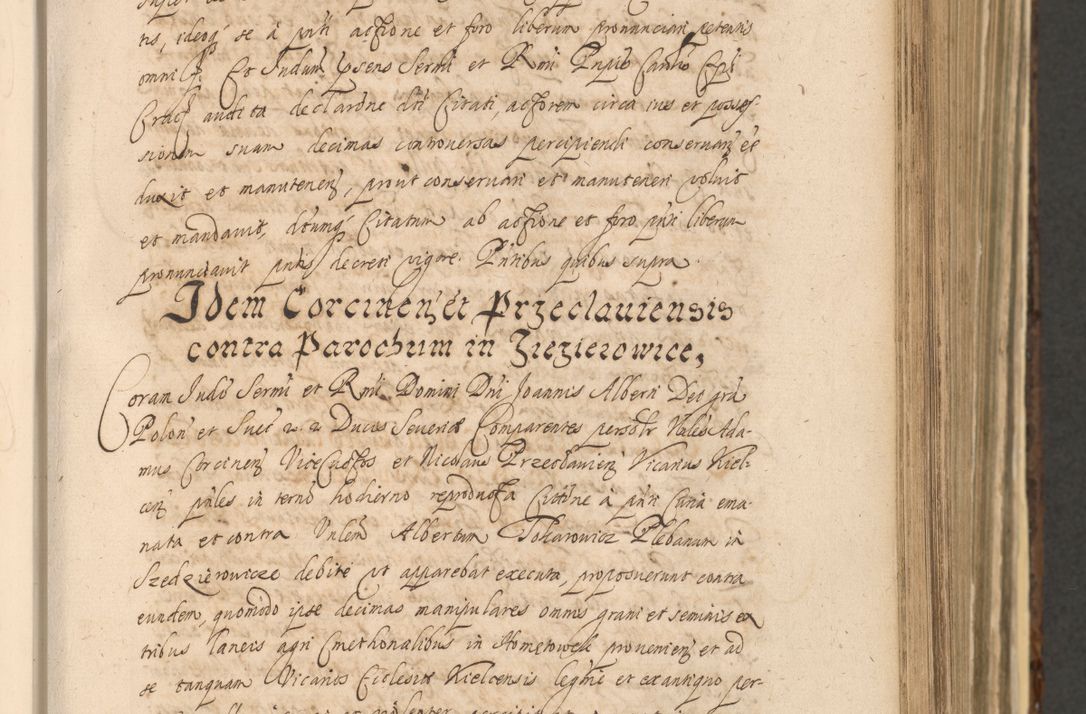 tis, ideoq se à pnti actione et foro liberum pronunciari petentis
omni Et Judm Ipsens Sermi et Rmi Dni
Crac audita declarone dti Citati, actorem circa ius et posses-
sionem suam decimas controversas percipiendi conservan ee
duxit et manutenen, prout conservari et manuteneri voluit
et mandavit, dtumq Citatum ab actione et foro pnti liberum
pronunciavit pntis decreti vigore. Pntibus quibus supra
Idem Corcinen et Przeclauiensis
contra Parochum in Ziezierowice,
Coram Judo Sermi et Rmi Domini Dni Joannis Alberti Dei grã
Polon et Suec 2. 2 Ducis Severiæ Comparentes personlr Nbles Ada-
mus Corcinen Vice et Nicolaus Przeclavien Vicarius Kiel-
cen pñles in termo hodierno reproducta Cittne à pnti Curia ema-
nata et contra Vnlem Albertum Tokarowicz Plebanum in
Szedzierowicze debite ut apparebat executa, proposuerunt contra
eundem, quomodo ipse decimas manipulares omnis grani et seminis ex
tribus laneis agri Cmethonalibus in Hometowek provenien et ad
se tanquam Vicarios Ecclesiæ Kielcensis legtme et ex antiquo per-